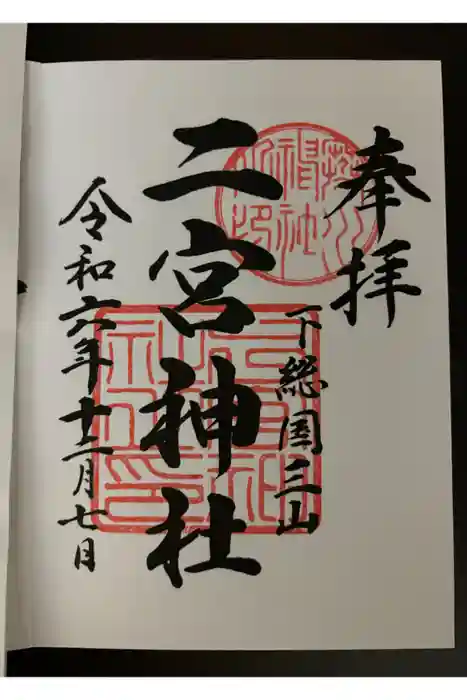 奉拝
下総国三山
二宮神社
令和六年十二月七日